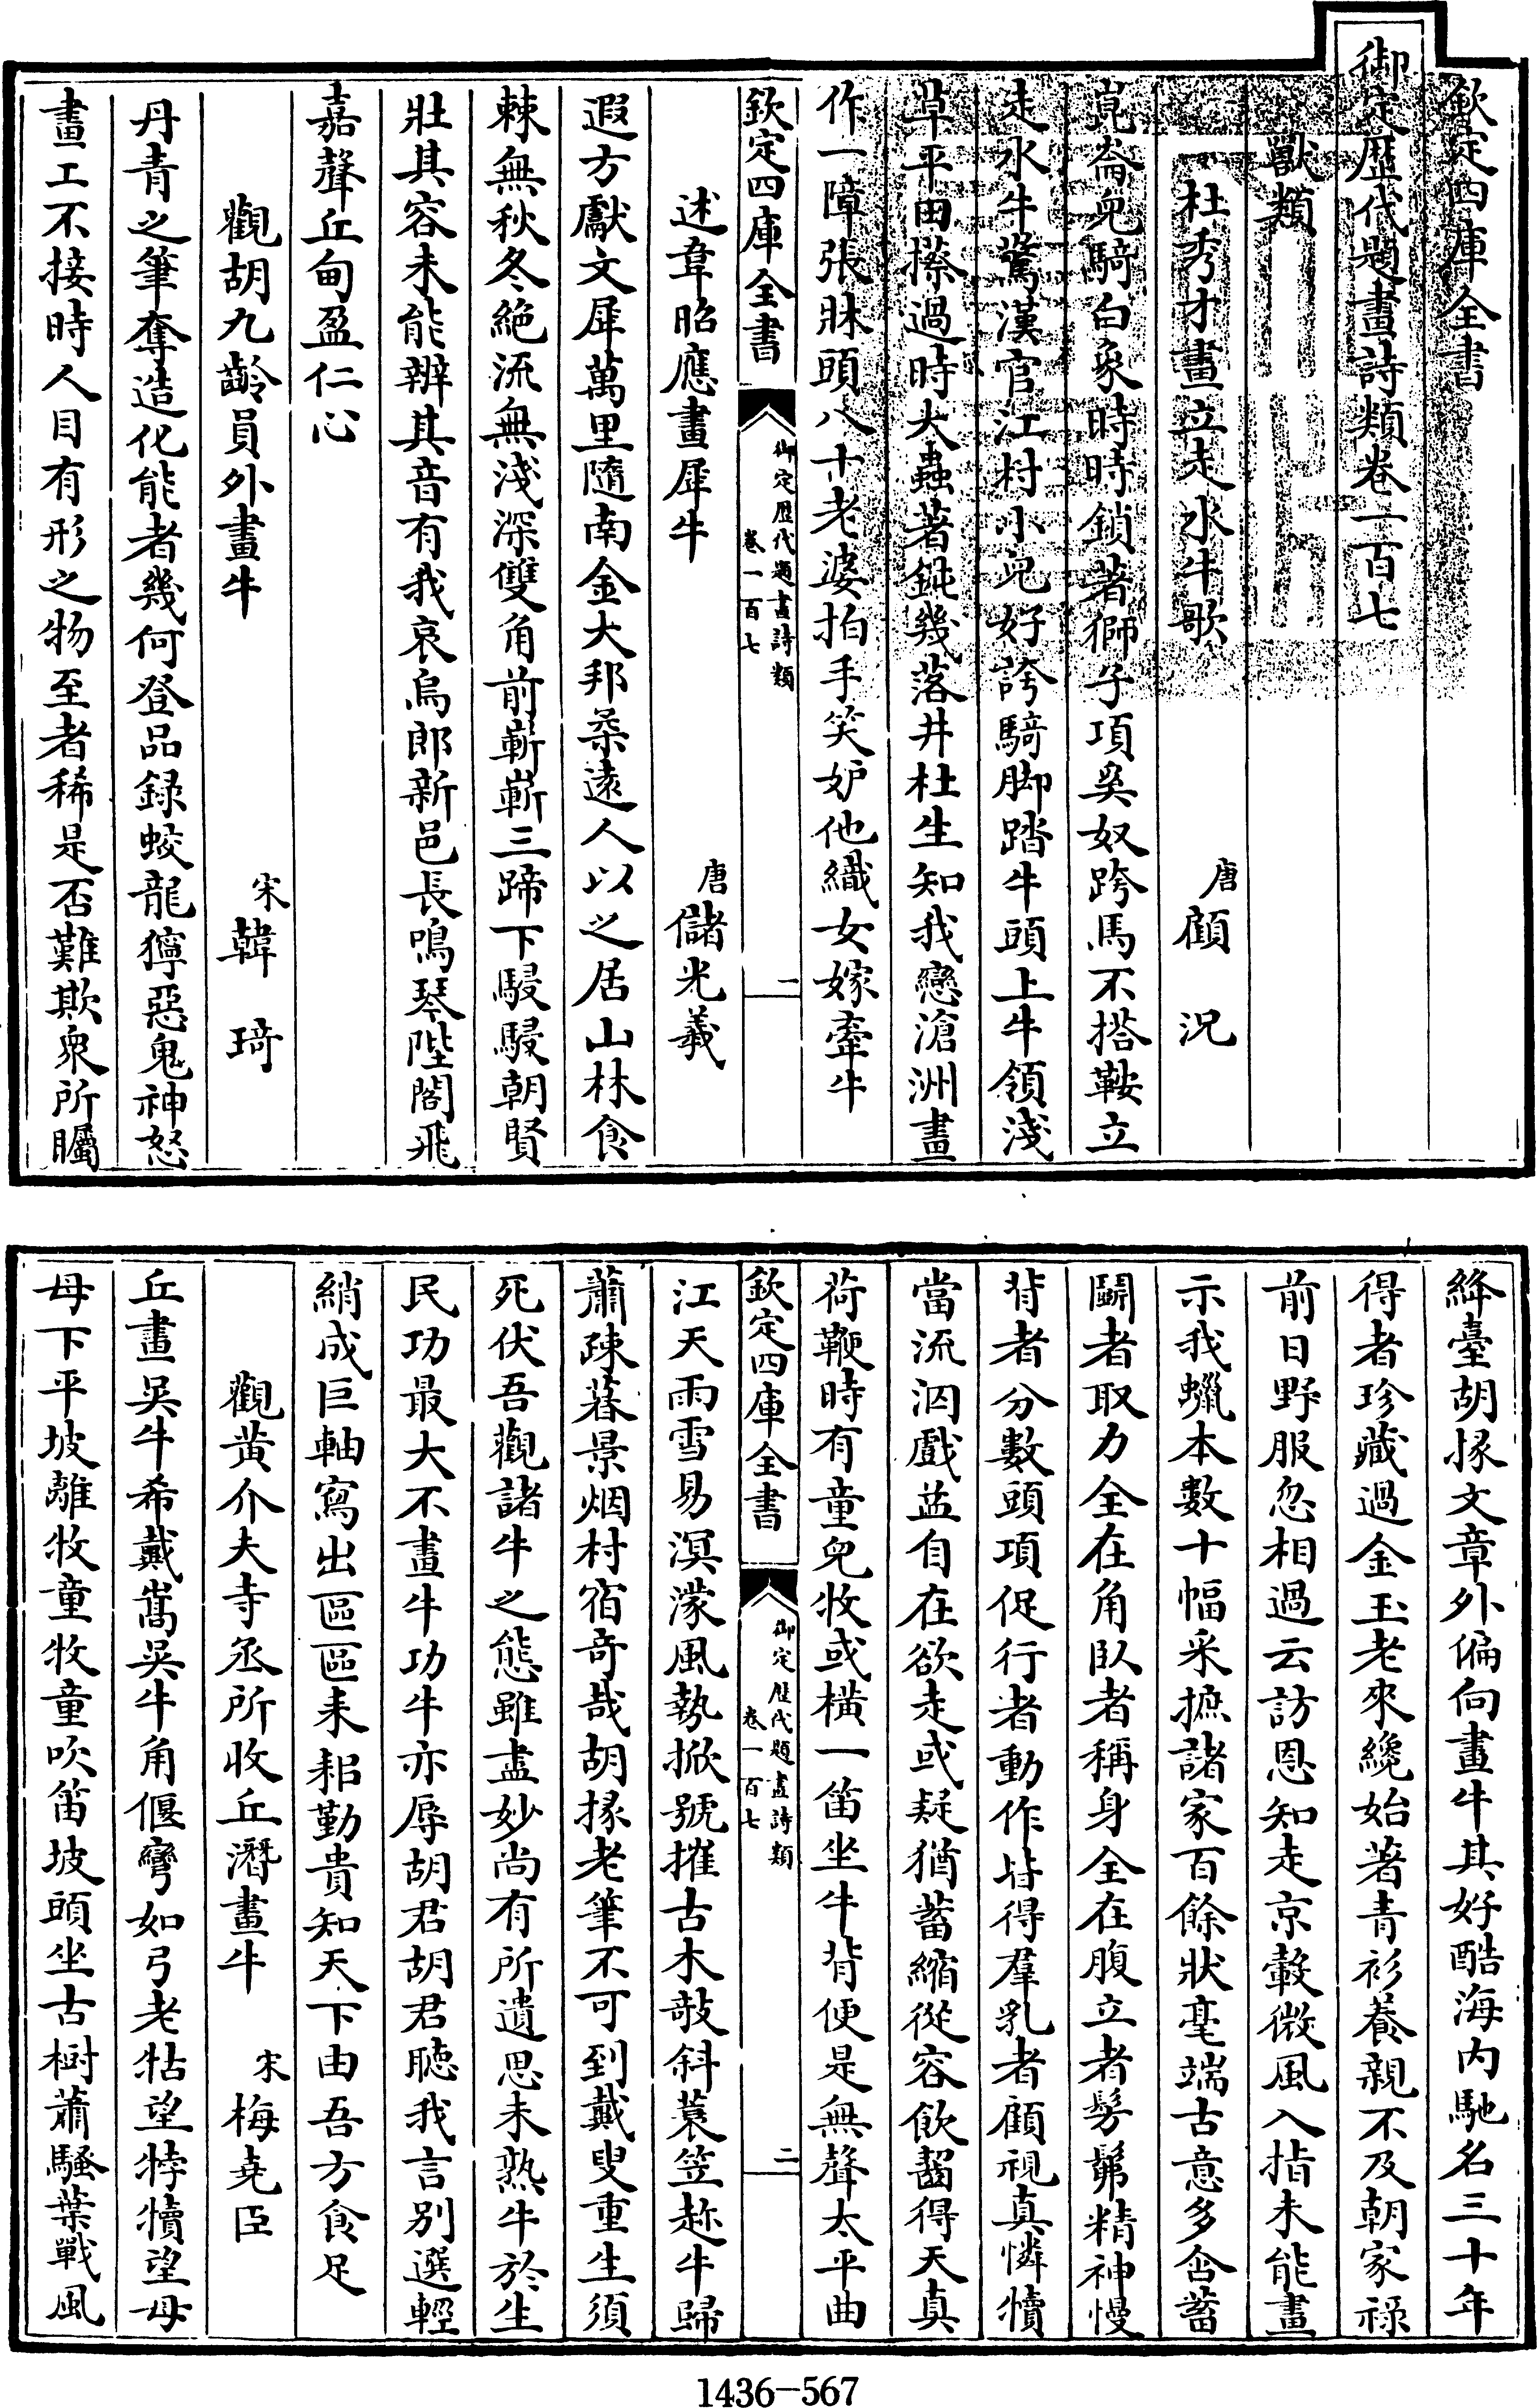 欽定四庫全書
御定歴代題畫詩類卷一百七
獸類
杜秀才畫立走水牛歌
唐顧況
崑崙兒騎白象時時鎖著獅子項奚奴跨馬不搭鞍立
走水牛驚漢官江村小兒好誇騎脚踏牛頭上牛領淺
草平田攃過時大蟲著鈍幾落井杜生知我戀滄洲畫
作一障張牀頭八十老婆拍手笑妒他織女嫁牽牛
欽定四庫全書
御定歴代題畫詩類
卷一百七
一
述韋昭應畫犀牛
唐儲光羲
遐方獻文犀萬里隨南金大邦柔遠人以之居山林食
棘無秋冬絶流無淺深雙角前嶄嶄三蹄下駸駸朝賢
壯其容未能辨其音有我哀烏郎新邑長鳴琴陛閣飛
嘉聲丘甸盈仁心
觀胡九齡員外畫牛
宋韓琦
丹青之筆奪造化能者幾何登品録蛟龍獰惡鬼神怒
畫工不接時人目有形之物至者稀是否難欺衆所矚
絳臺胡掾文章外偏向畫牛其好酷海内馳名三十年
得者珍藏過金玉老來纔始著青衫養親不及朝家禄
前日野服忽相過云訪恩知走京轂微風入指未能畫
示我蠟本數十幅采摭諸家百餘狀毫端古意多含蓄
鬭者取力全在角臥者稱身全在腹立者髣髴精神慢
背者分數頭項促行者動作皆得羣乳者顧視真憐犢
當流泅戲益自在欲走或疑猶蓄縮從容飲齧得天真
荷鞭時有童兒牧或横一笛坐牛背便是無聲太平曲
欽定四庫全書
御定歴代題畫詩類
卷一百七
二
江天雨雪易溟濛風勢掀號摧古木敧斜蓑笠趂牛歸
蕭疎暮景烟村宿奇哉胡掾老筆不可到戴叟重生須
死伏吾觀諸牛之態雖盡妙尚有所遺思未熟牛於生
民功最大不畫牛功牛亦辱胡君胡君聽我言别選輕
綃成巨軸寫出區區耒耜勤貴知天下由吾方食足
觀黄介夫寺丞所收丘潛畫牛
宋梅堯臣
丘畫吳牛希戴嵩吳牛角偃彎如弓老牯望㹀犢望母
母下平坡離牧童牧童吹笛坡頭坐古樹蕭騷葉戰風
1436-567